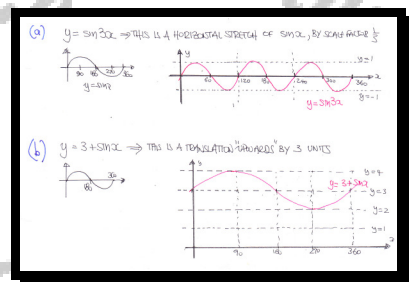 (a) y = sin3x ⇒ THIS IS A HORIZONTAL STRETCH OF sinx, BY SCALE FACTOR 1/3
y
y=1
90 180 270 360
60 120 180 240 300 360 x
y=sinx
y=sin3x
y=-1
(b) y = 3+sinx ⇒ THIS IS A TRANSLATION "UPWARDS" BY 3 UNITS
y
y=4
180 360
y=3+sinx
y=3
y=2
y=1
90 180 270 360 x